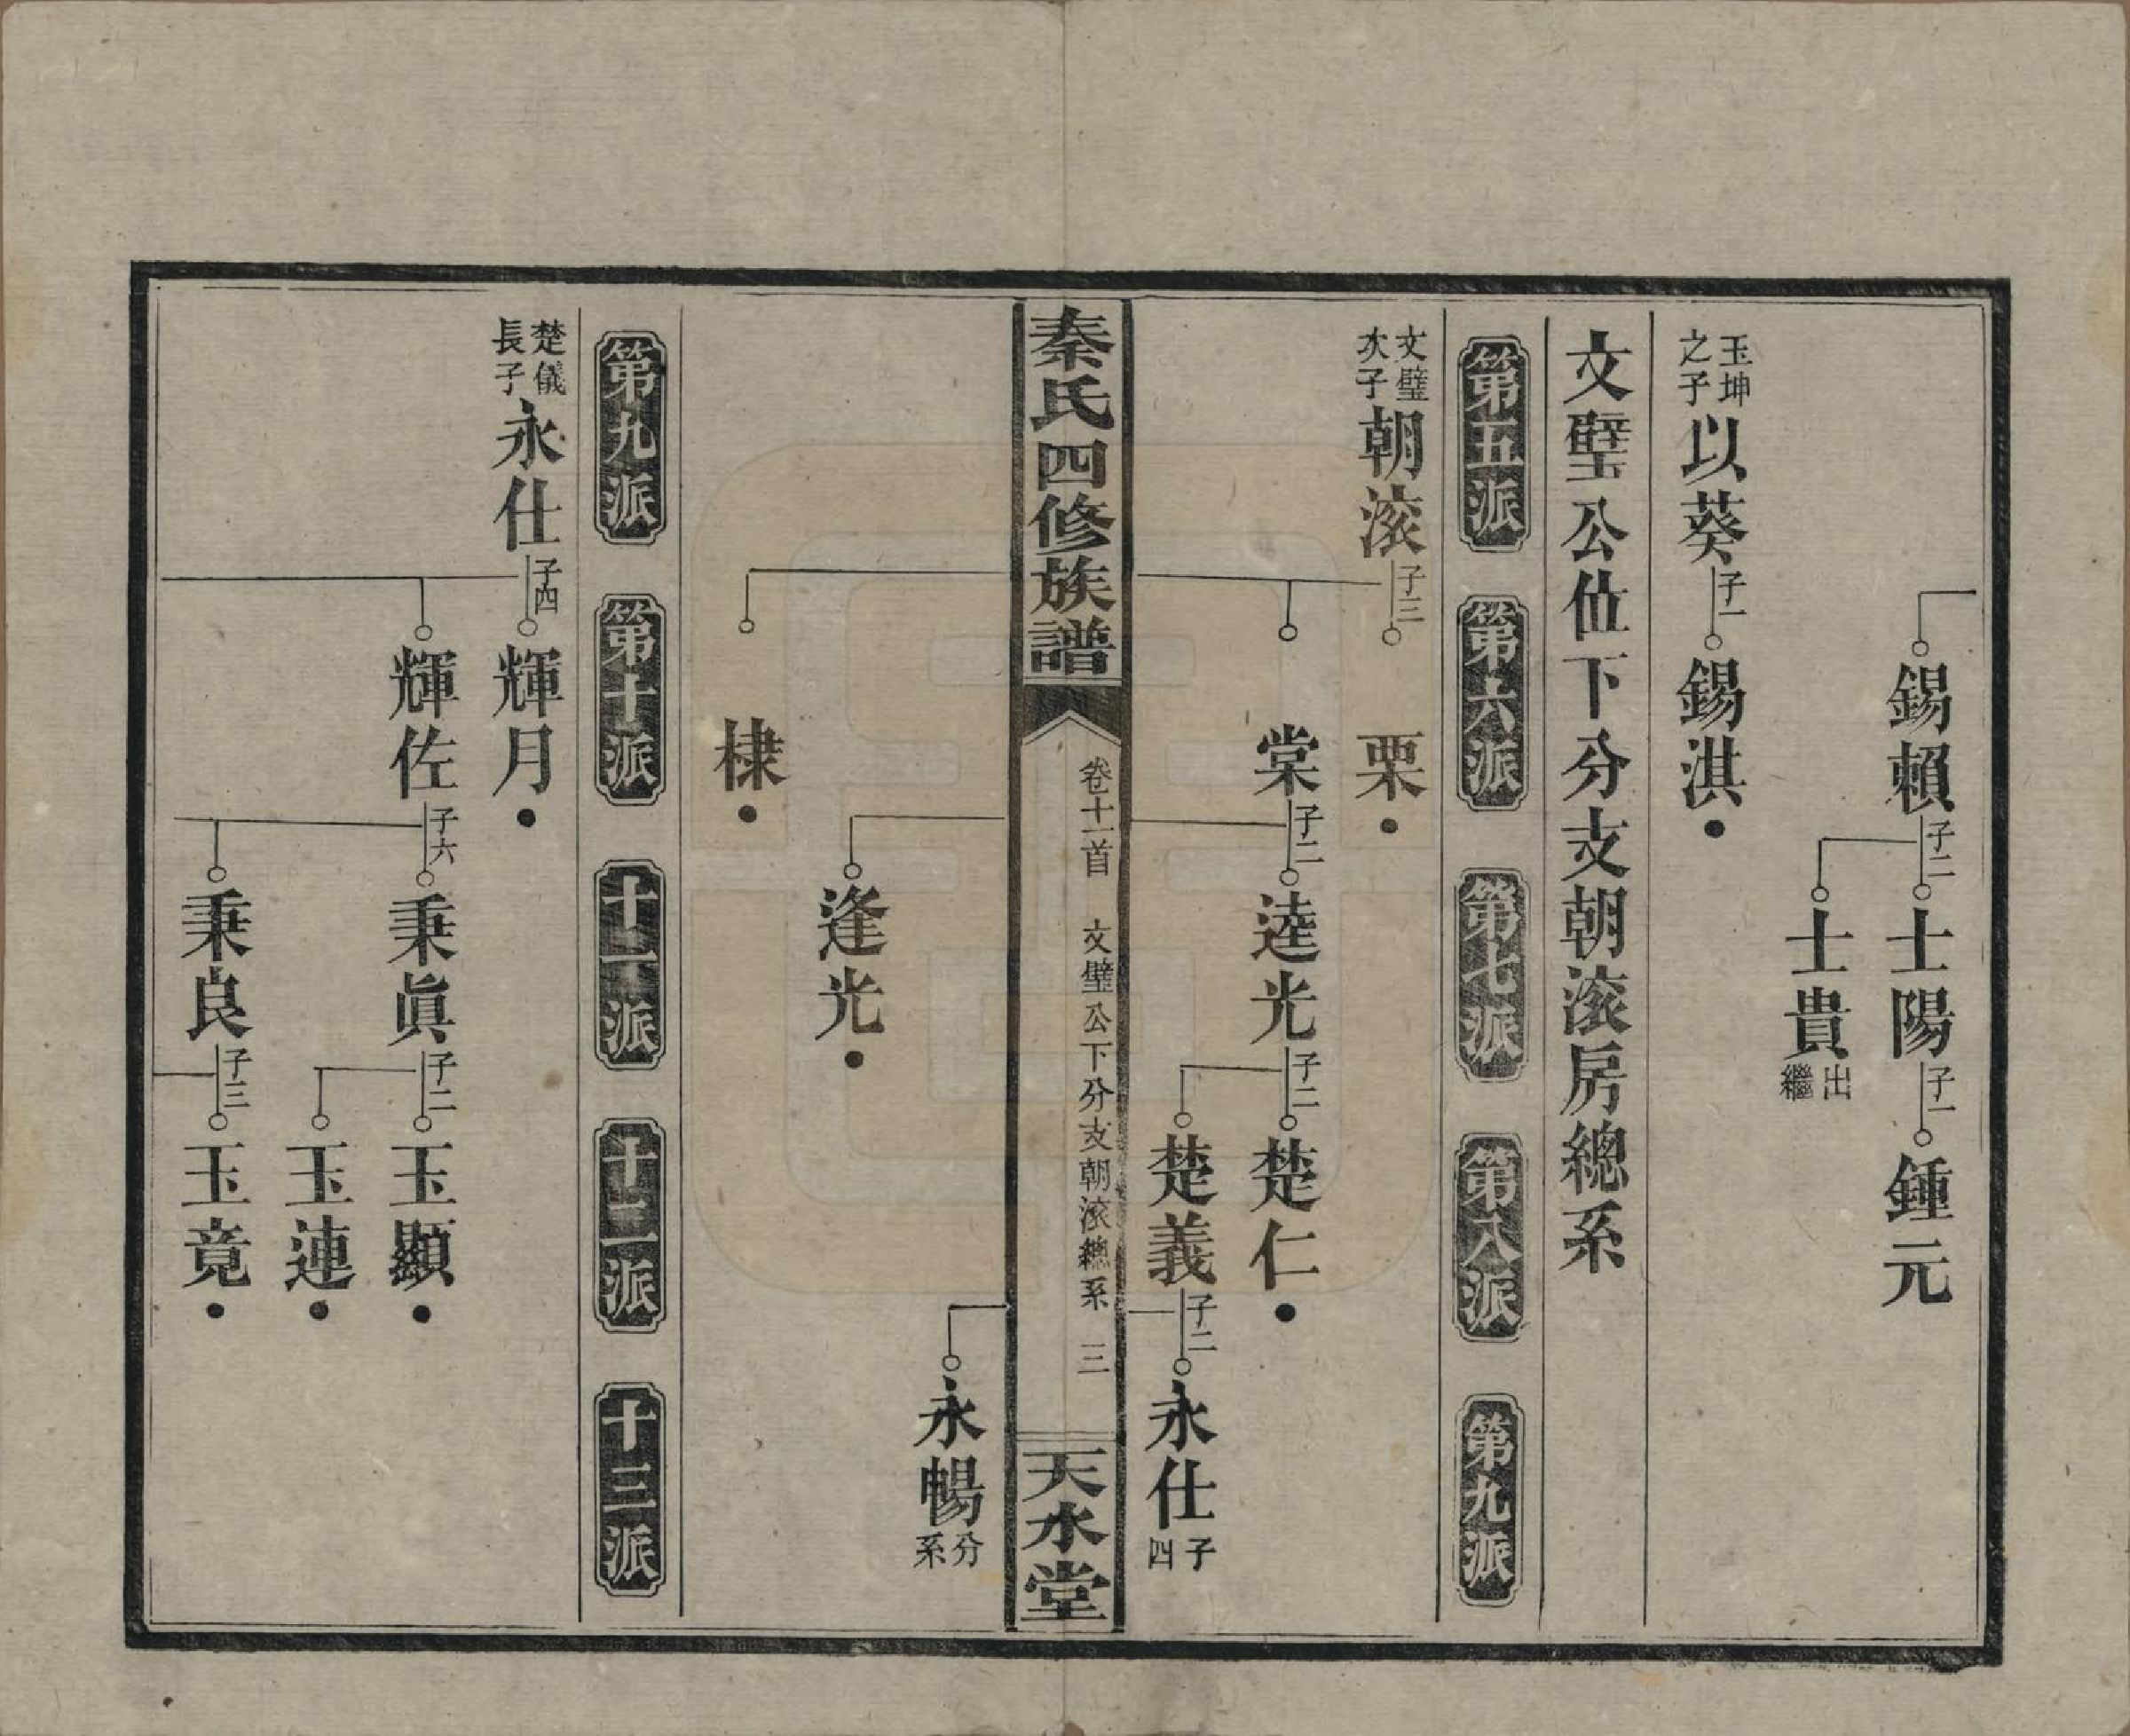 錫賴 子二 士陽 子一 鍾元
士貴 出繼
玉坤之子 以葵 子一 錫淇
文璧公位下分支朝滚房總系
第五派 第六派 第七派 第八派 第九派
文璧次子 朝滚 子三 栗
棠 子二 逵光 子二 楚仁
楚義 子二 永仕 子四
秦氏四修族譜 卷十一首 文璧公下分支朝滚總系 三 天水堂
永暢 分系
逢光
棣
第九派 第十派 十一派 十二派 十三派
楚儀長子 永仕 子四 輝月
輝佐 子六 秉眞 子二 玉顯
玉連
秉良 子三 玉竟